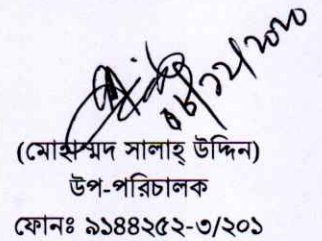 (মোহাম্মদ সালাহ্ উদ্দিন)
উপ-পরিচালক
ফোনঃ ৯১৪৪২৫২-৩/২০১